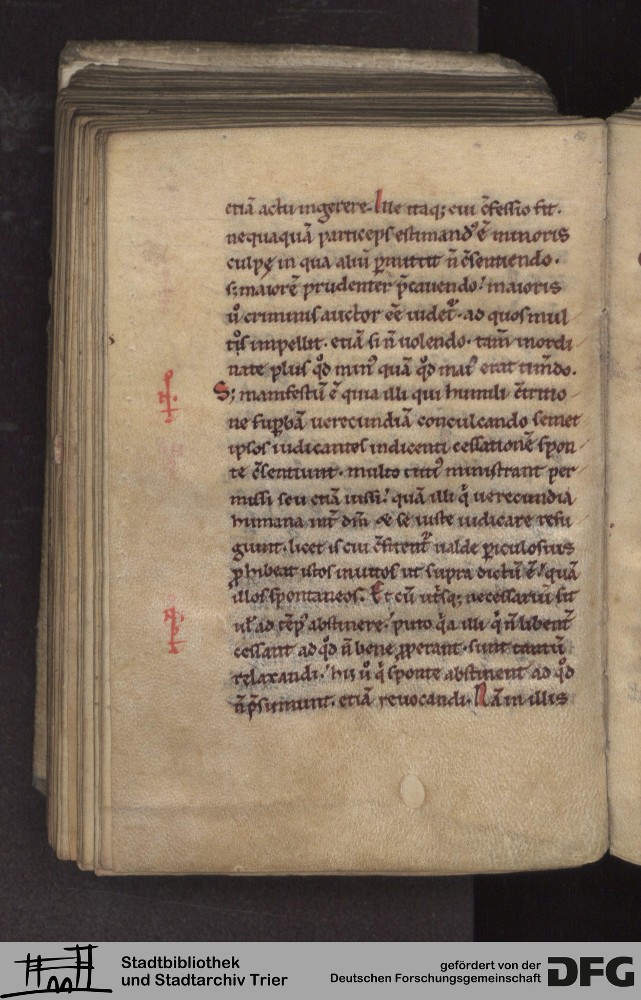 etiā actu ingerere. Ille itaq; cui c̄fessio fit.
nequaquā particeps estimandꝰ ē minoris
culpę in qua aliū ꝑmittit n̄ c̄sentiendo.
s; maiorē prudenter p̄cauendo. maioris
ů criminis auctor ēē uidet᷒. ad quos mul
tos impellit. etiā si n̄ uolendo. tam̄ inordi
nate plus qd̄ minꝰ quā qd̄ maiꝰ erat timēdo.
S; manifestū ē quia illi qui humili c̄tritio
ne suꝑbā uerecundiā conculcando semet
ipsos iudicantes indicenti cessationē spon
te c̄sentiunt. multo tutiꝰ ministrant per
missi seu etiā iussi. quā illi q̇ uerecundia
humana int̄ dm̄ & se iuste iudicare refu
giunt. licet is cui c̄fitent᷒ ualde ꝑiculosius
ꝓhibeat istos inuitos ut supra dictū ē. quā
illos spontaneos. Et cū utrisq; necessariū sit
uł ad tēpꝰ abstinere. puto q̇a illi q̇ n̄ libent᷒
cessant ad qd̄ n̄ bene ꝓperant. sunt
relaxandi. his ů q̇ sponte abstinent ad qd̄
n̄ p̄sumunt. etiā reuocandi. Nā in illis
Stadtbibliothek
und Stadtarchiv Trier
gefördert von der
Deutschen Forschungsgemeinschaft
DFG